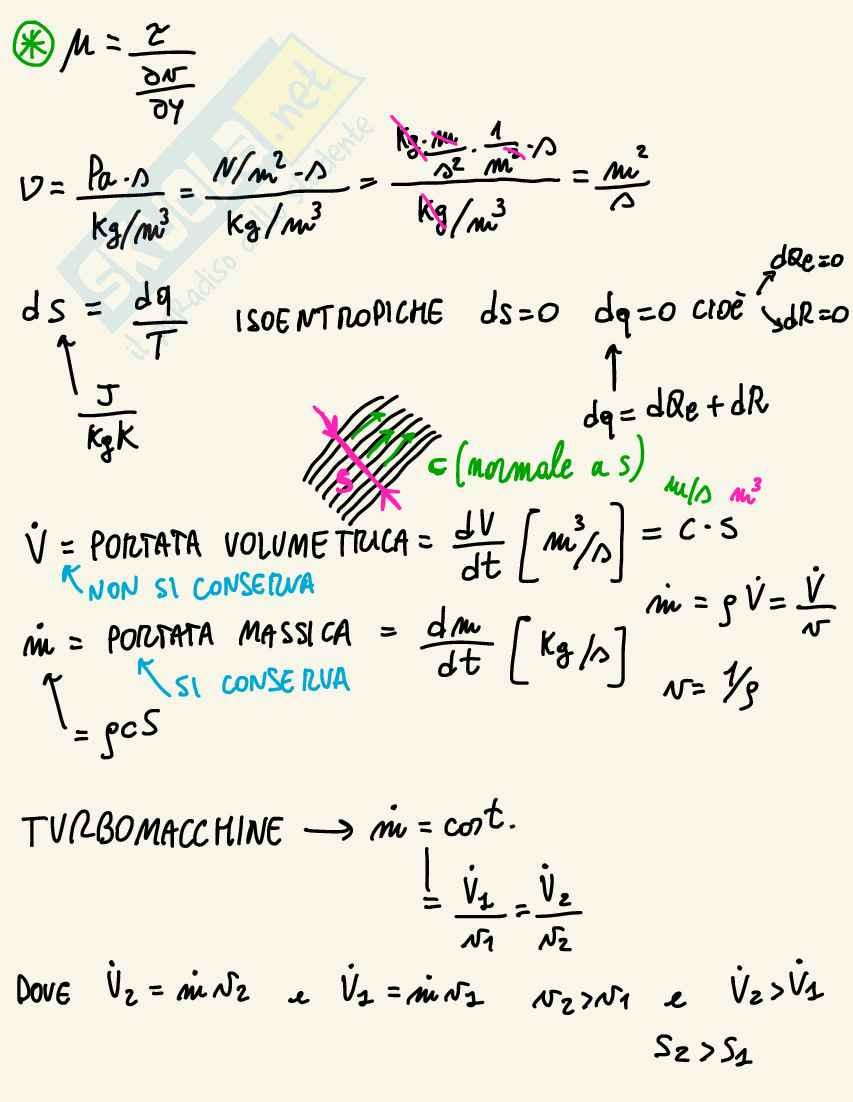 * μ = τ / (∂v/∂y)
ν = Pa·s / kg/m³ = N/m² · s / kg/m³ = kg·m/s² · 1/m² · s / kg/m³ = m²/s
dS = dq/T ISOENTROPICHE ds=0 dq=0 CIOÈ dQe=0 dR=0
J/kgK
dq = dQe + dR
S c (normale a S)
m/s m³
V̇ = PORTATA VOLUMETRICA = dV/dt [m³/s] = c · S
NON SI CONSERVA
ṁ = ρ V̇ = V̇/v
ṁ = PORTATA MASSICA = dm/dt [Kg/s]
SI CONSERVA
v = 1/ρ
= ρcS
TURBOMACCHINE → ṁ = cost.
= V̇1/v1 = V̇2/v2
DOVE V̇2 = ṁ v2 e V̇1 = ṁ v1 v2 > v1 e V̇2 > V̇1
S2 > S1
SKUOLA.net
il paradiso dello studente